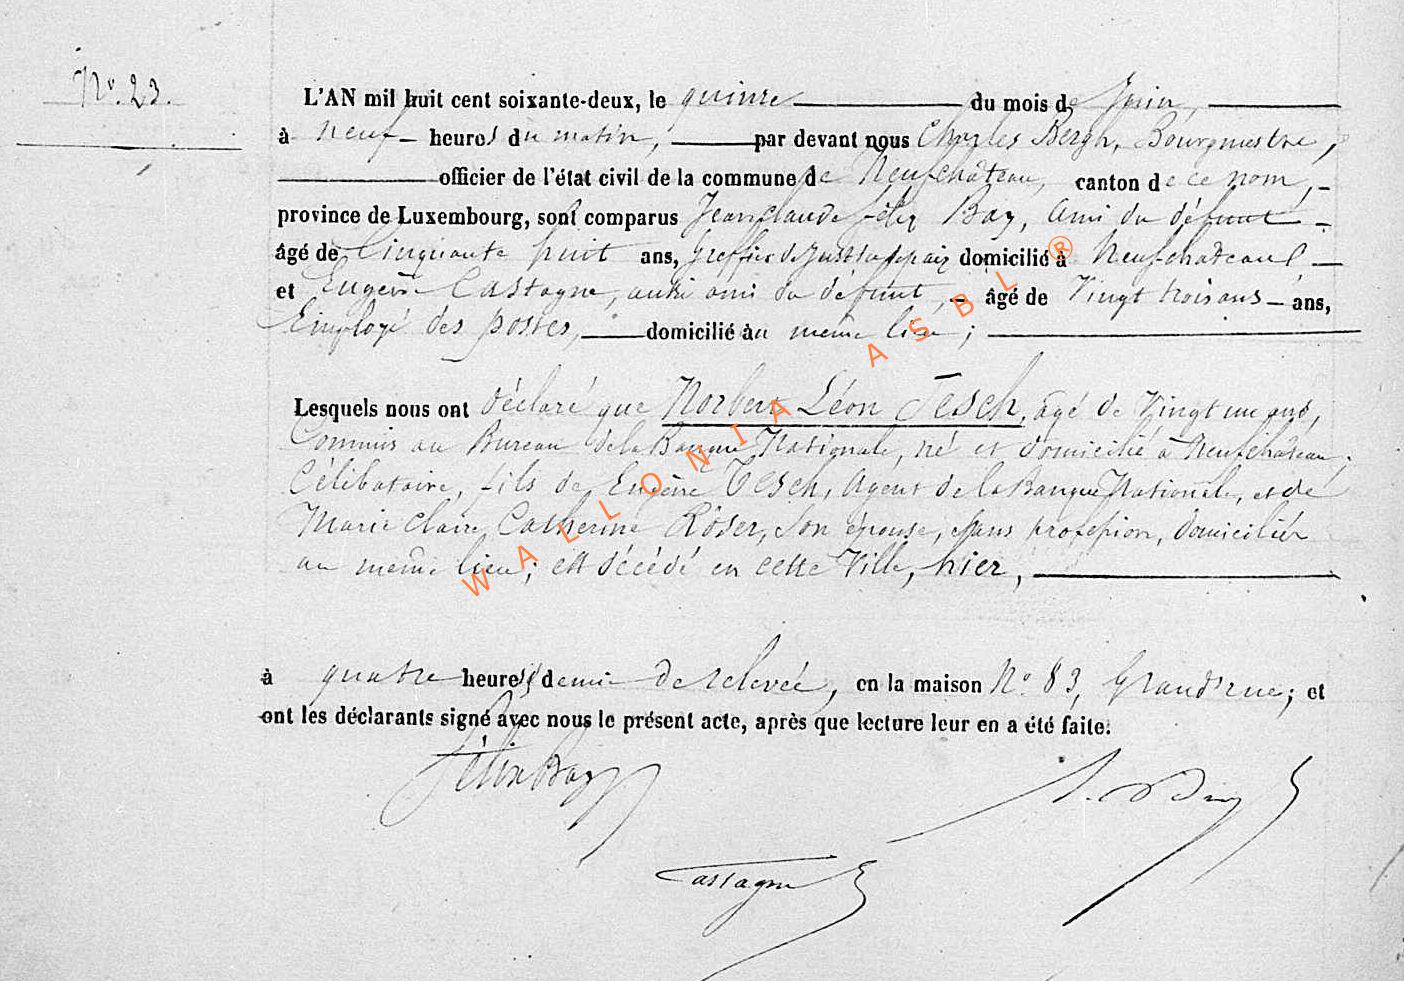 N° 23.
L'AN mil huit cent soixante-deux, le quinze du mois de Juin,
à neuf heures du matin, par devant nous Charles Bergh, Bourgmestre,
officier de l'état civil de la commune de Neufchâteau, canton de ce nom,
province de Luxembourg, sont comparus Jean Claude félix Bay, ami du défunt
âgé de Cinquante huit ans, greffier de Justice de paix domicilié à Neufchateau,
et Eugène Castagne, aussi ami du défunt, âgé de Vingt trois ans ans,
Employé des postes, domicilié au même lieu;
Lesquels nous ont déclaré que Norbert Léon Tesch, âgé de Vingt un ans,
Commis au Bureau de la Banque Nationale, né et domicilié à Neufchâteau,
Célibataire, fils de Eugène Tesch, Agent de la Banque Nationale, et de
Marie Claire Catherine Röser, son épouse, sans profession, domiciliés
au même lieu; est décédé en cette Ville, hier,
à quatre heures demie de relevée, en la maison N° 83, Grand'rue; et
ont les déclarants signé avec nous le présent acte, après que lecture leur en a été faite.
félix Bay
Castagne
WALLONIA ASBL ®